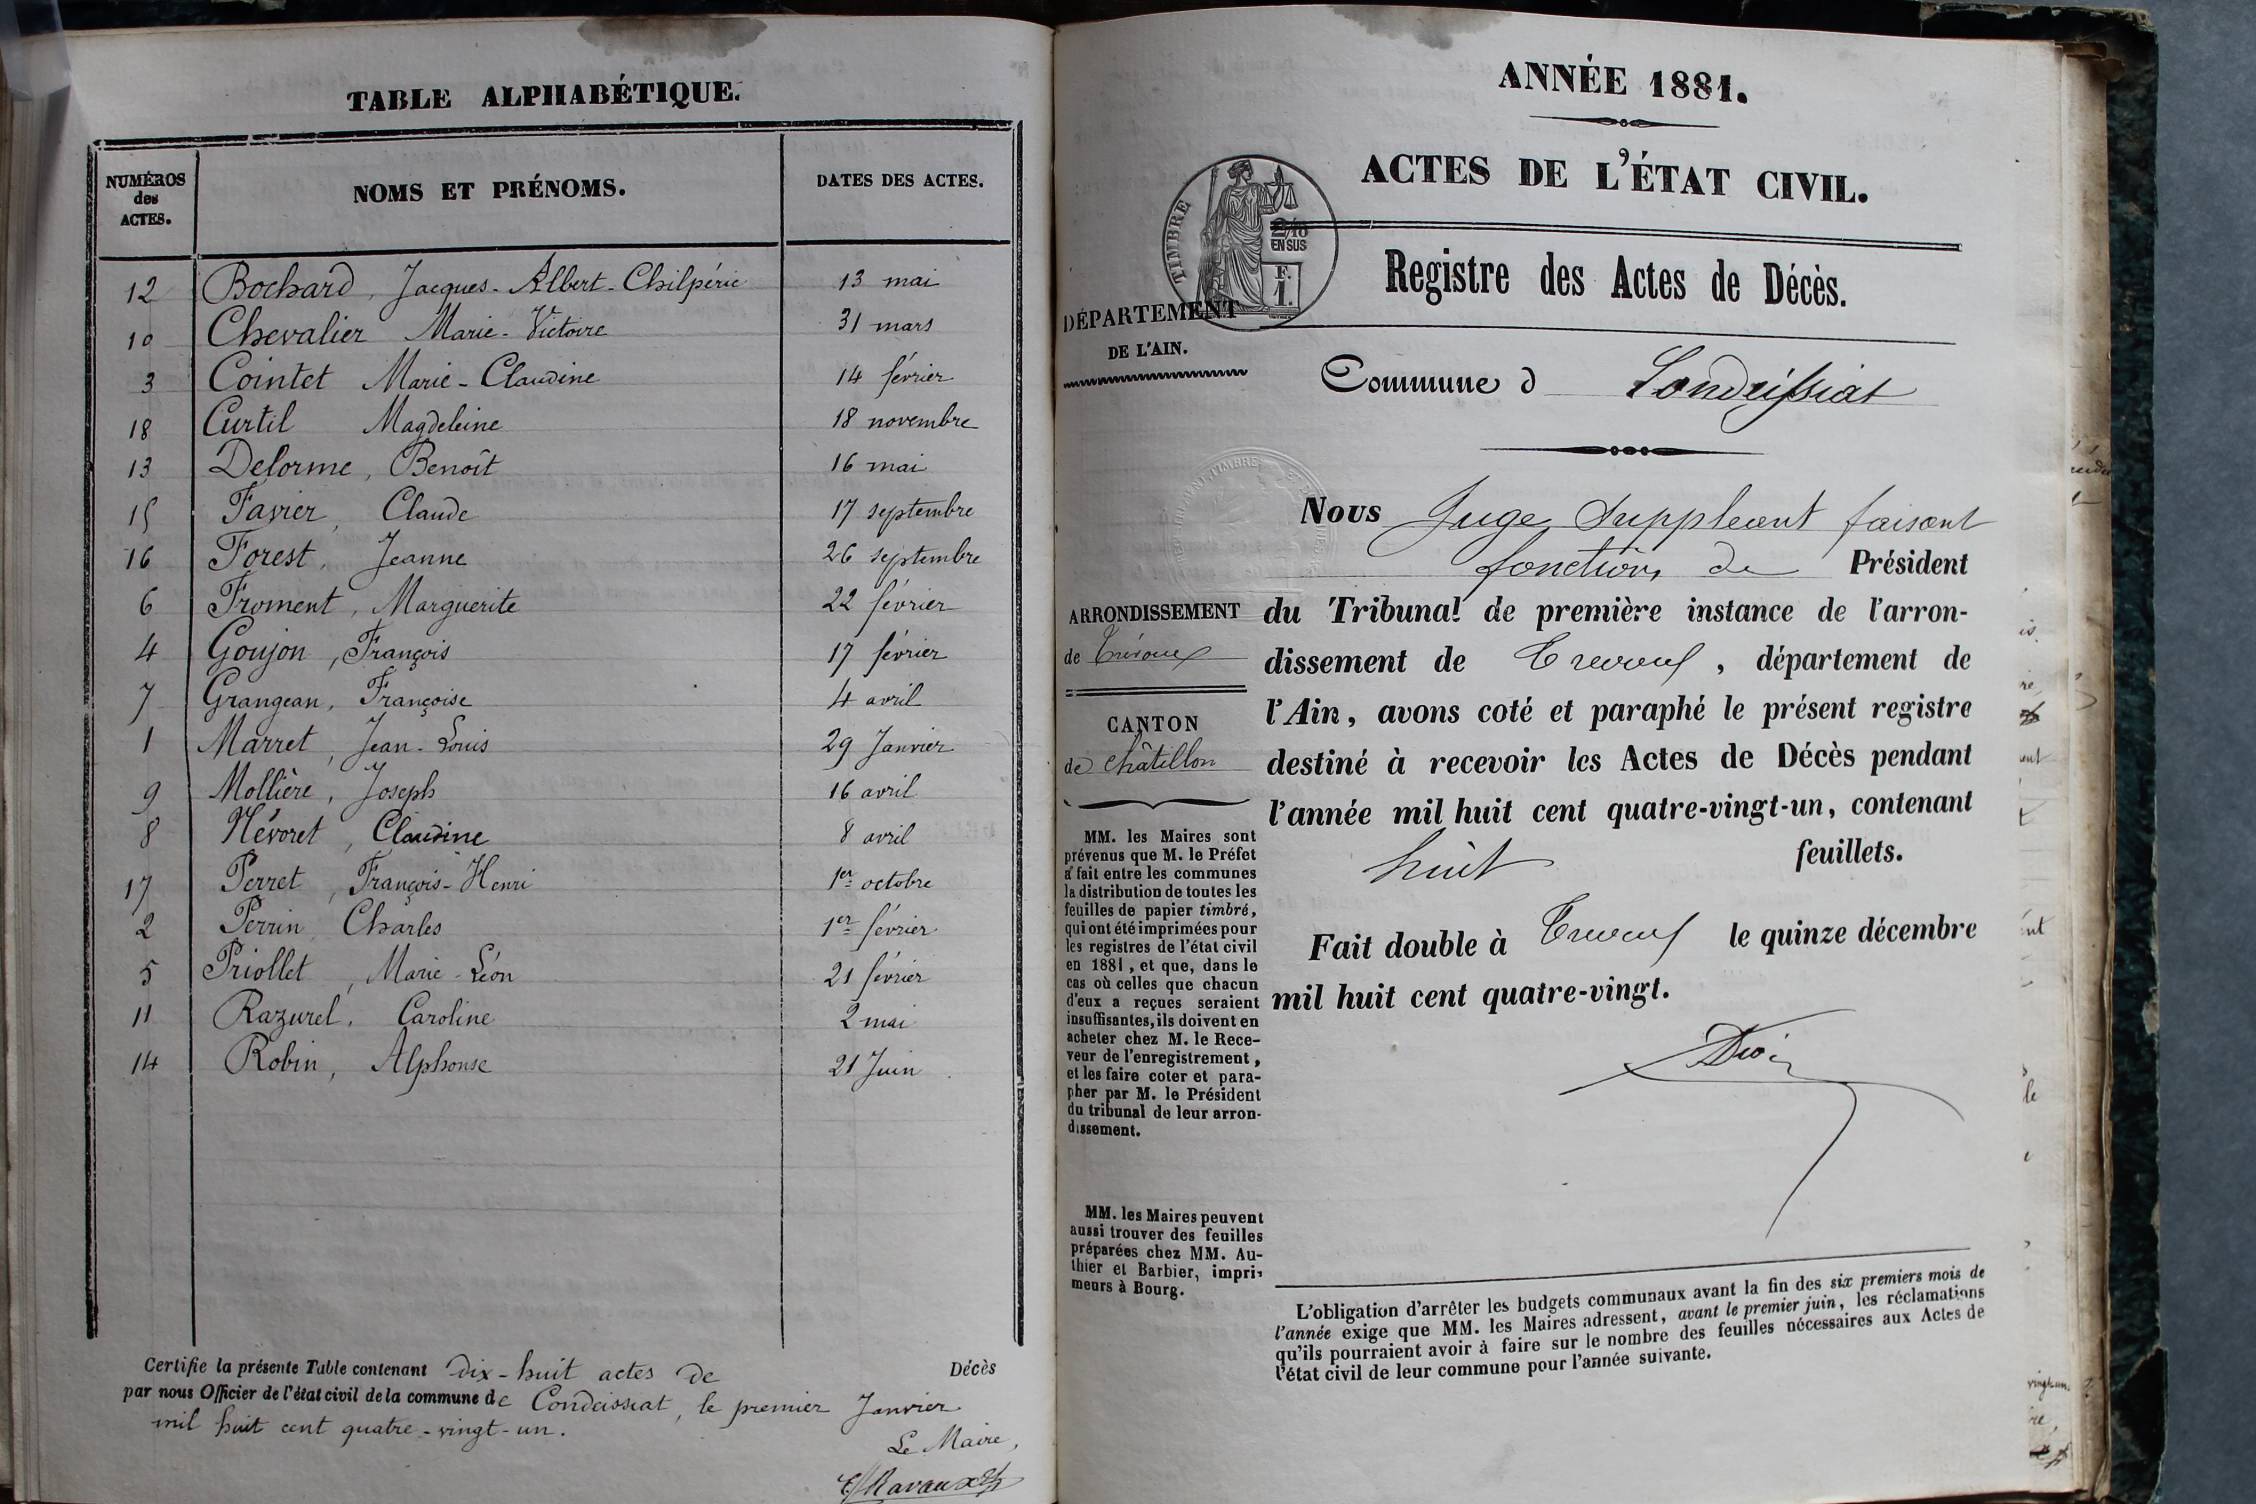 TABLE ALPHABÉTIQUE.
NUMÉROS des ACTES. NOMS ET PRÉNOMS. DATES DES ACTES.
12 Bochard, Jacques-Albert-Chilpéric 13 mai
10 Chevalier Marie-Victoire 31 mars
3 Cointet Marie-Claudine 14 février
18 Curtil Magdeleine 18 novembre
13 Delorme, Benoît 16 mai
15 Favier, Claude 17 septembre
16 Forest, Jeanne 26 septembre
6 Froment, Marguerite 22 février
4 Goujon, François 17 février
7 Grangean, Françoise 4 avril
1 Marret, Jean-Louis 29 Janvier
9 Mollière, Joseph 16 avril
8 Névoret, Claudine 8 avril
17 Perret, François-Henri 1er octobre
2 Perrin, Charles 1er février
5 Priollet, Marie-Léon 21 février
11 Razurel, Caroline 2 mai
14 Robin, Alphonse 21 Juin
Certifie la présente Table contenant dix-huit actes de Décès
par nous Officier de l'état civil de la commune de Condeissiat, le premier Janvier
mil huit cent quatre-vingt-un.
Le Maire,
ANNÉE 1881.
ACTES DE L'ÉTAT CIVIL.
TIMBRE
2/10
EN SUS
F.
1.
Registre des Actes de Décès.
DÉPARTEMENT
DE L'AIN.
Commune d Condeissiat
Nous Juge Suppléant faisant
fonctions de Président
du Tribunal de première instance de l'arron-
dissement de Trevoux, département de
l'Ain, avons coté et paraphé le présent registre
destiné à recevoir les Actes de Décès pendant
l'année mil huit cent quatre-vingt-un, contenant
huit feuillets.
Fait double à Trevoux le quinze décembre
mil huit cent quatre-vingt.
ARRONDISSEMENT
de Trévoux
CANTON
de Châtillon
MM. les Maires sont
prévenus que M. le Préfet
a fait entre les communes
la distribution de toutes les
feuilles de papier timbré,
qui ont été imprimées pour
les registres de l'état civil
en 1881, et que, dans le
cas où celles que chacun
d'eux a reçues seraient
insuffisantes, ils doivent en
acheter chez M. le Rece-
veur de l'enregistrement,
et les faire coter et para-
pher par M. le Président
du tribunal de leur arron-
dissement.
MM. les Maires peuvent
aussi trouver des feuilles
préparées chez MM. Au-
thier et Barbier, impri-
meurs à Bourg.
L'obligation d'arrêter les budgets communaux avant la fin des six premiers mois de
l'année exige que MM. les Maires adressent, avant le premier juin, les réclamations
qu'ils pourraient avoir à faire sur le nombre des feuilles nécessaires aux Actes de
l'état civil de leur commune pour l'année suivante.